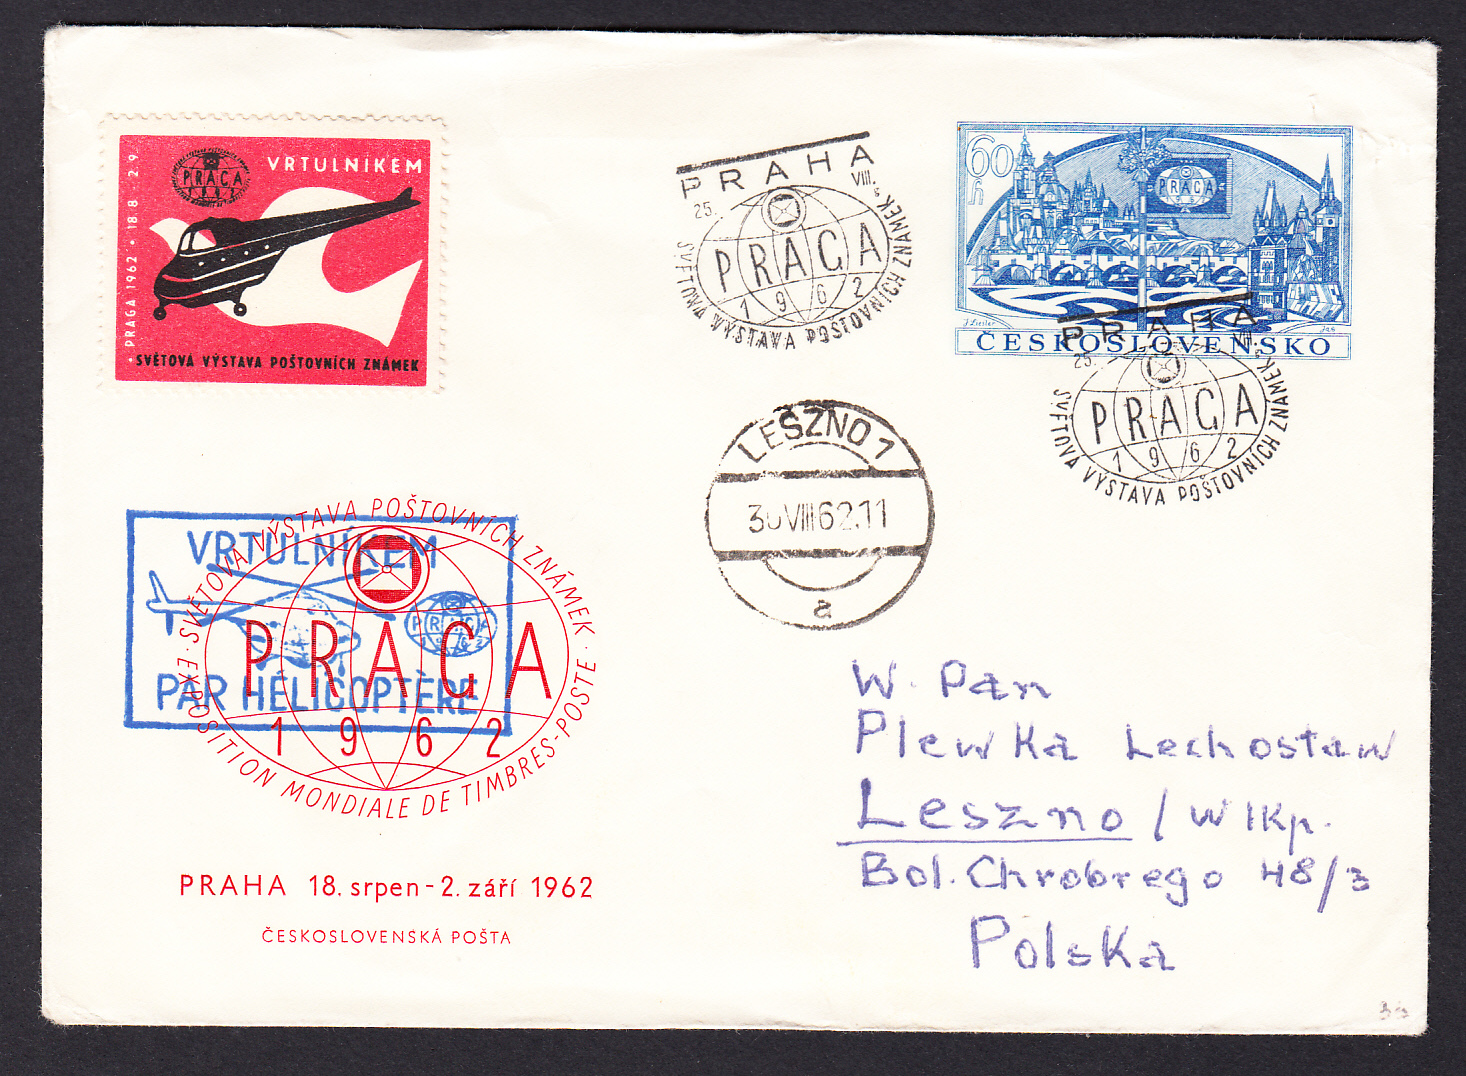 VRTULNÍKEM
PRAGA
1962
PRAGA 1962 • 18.8 - 2.9.
SVĚTOVÁ VÝSTAVA POŠTOVNÍCH ZNÁMEK
PRAHA
25. VIII.
PRAGA
1962
SVĚTOVÁ VÝSTAVA POŠTOVNÍCH ZNÁMEK
60 h
PRAGA
ČESKOSLOVENSKO
PRAHA
25. VIII.
PRAGA
1962
SVĚTOVÁ VÝSTAVA POŠTOVNÍCH ZNÁMEK
LESZNO 1
30 VIII 62.11
a
SVĚTOVÁ VÝSTAVA POŠTOVNÍCH ZNÁMEK
VRTULNÍKEM
PRAGA
1962
PAR HÉLICOPTÈRE
PRAGA
1962
EXPOSITION MONDIALE DE TIMBRES-POSTE
PRAHA 18. srpen - 2. září 1962
ČESKOSLOVENSKÁ POŠTA
W. Pan
Plewka Lechosław
Leszno / Wlkp.
Bol. Chrobrego 48/3
Polska